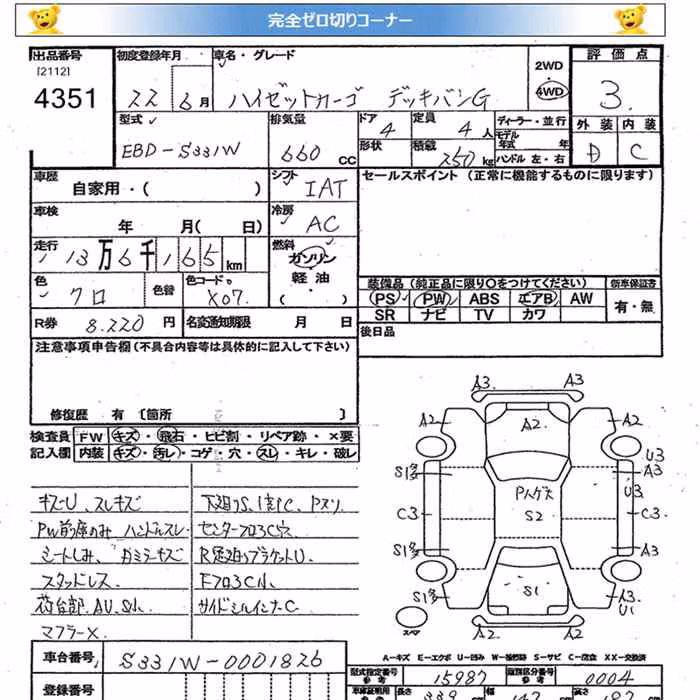 完全ゼロ切りコーナー
出品番号 初度登録年月 車名・グレード 2WD 4WD 評価点
[2112]
4351 22 6月 ハイゼットカーゴ デッキバンG 3.
型式 排気量 ドア 定員 ディーラー・並行 外装 内装
EBD-S331W 660 CC 4 4人 モデル年式 年 D C
形状 積載 250kg ハンドル 左・右
車歴 シフト セールスポイント (正常に機能するものに限ります)
自家用・( ) IAT
車検 冷房
年 月( 日) AC
走行 燃料
13万6千165km ガソリン
軽油
( )
色 色替 色コード 装備品 (純正品に限り○をつけてください) 新車保証書
クロ X07. PS PW ABS エアB AW 有・無
SR ナビ TV カワ
R券 8.220円 名変通知期限 月 日 後日品
注意事項申告欄 (不具合内容等は具体的に記入して下さい)
修復歴 有 [箇所 ]
検査員 FW キズ・飛石・ヒビ割・リペア跡・×要
記入欄 内装 キズ・汚レ・コゲ・穴・スレ・キレ・破レ
キズU、スレキズ
PW前席のみ ハンドルスレ
シートしみ、
スタッドレス
荷台部.AU.S小
マフラーX
下廻りS、
センターフロアC穴
Fフロアc小
サイドシルインナーC
A3 A3
A2 A2 A2
U3
S1多 A3
U3
C3 S2 C3
S1多 A3
S1多 S1 A3
U1
スペア A2 A2
A-キズ E-エクボ U-凹み W-補修跡 S-サビ C-腐食 XX-交換済
車台番号 S331W-0001826
型式指定番号 15987 類別区分番号 0004
登録番号 長さ 339 幅 147 高さ 187